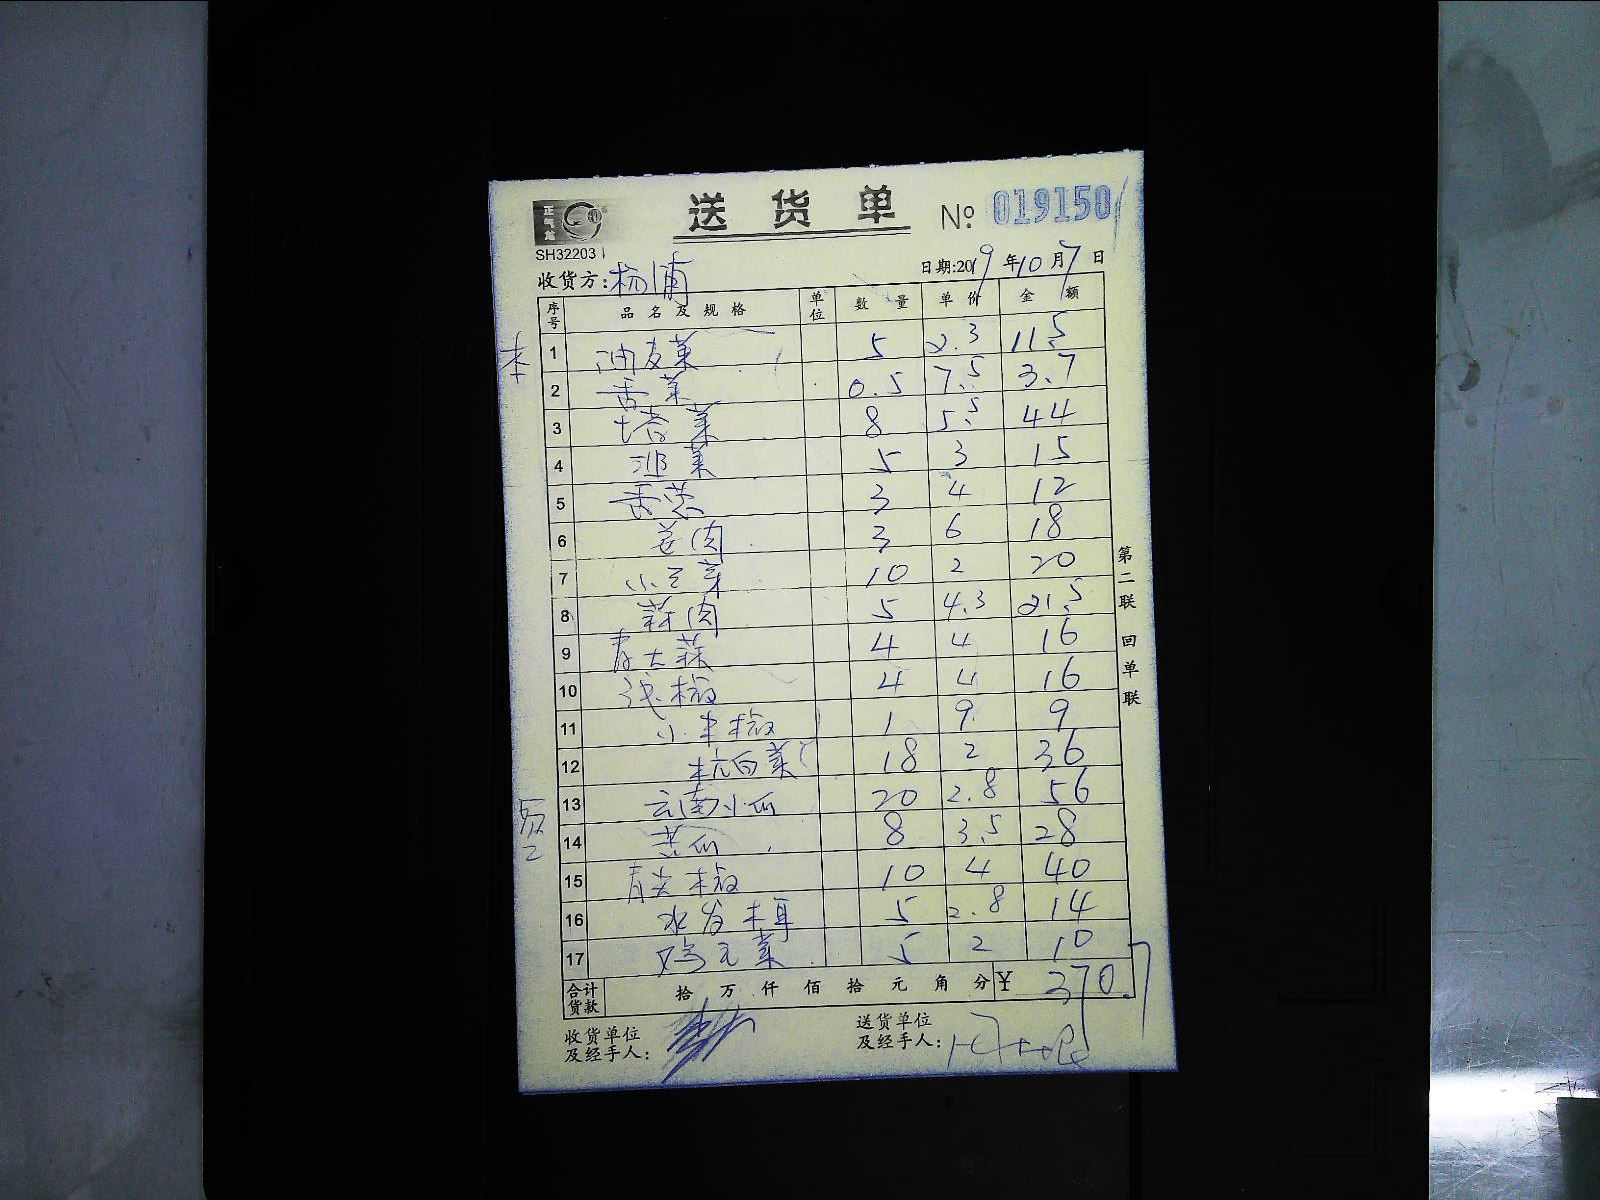 正气龙
送货单 № 0191501
SH32203
日期:2019年10月7日
收货方:杨浦
序号 品名及规格 单位 数量 单价 金额
1 油麦菜 5 2.3 11.5
2 香菜 0.5 7.5 3.7
3 塔菜 8 5.5 44
4 5 3 15
5 香葱 3 4 12
6 姜肉 3 6 18
7 小豆芽 10 2 20
8 蒜肉 5 4.3 21.5
9 青大蒜 4 4 16
10 线椒 4 4 16
11 小米椒 1 9 9
12 杭白菜 18 2 36
13 云南小瓜 20 2.8 56
14 苦瓜 8 3.5 28
15 青尖椒 10 4 40
16 水发木耳 5 2.8 14
17 鸡毛菜 5 2 10
合计货款 拾 万 仟 佰 拾 元 角 分 ¥ 370.7
收货单位及经手人:
送货单位及经手人:
第二联 回单联